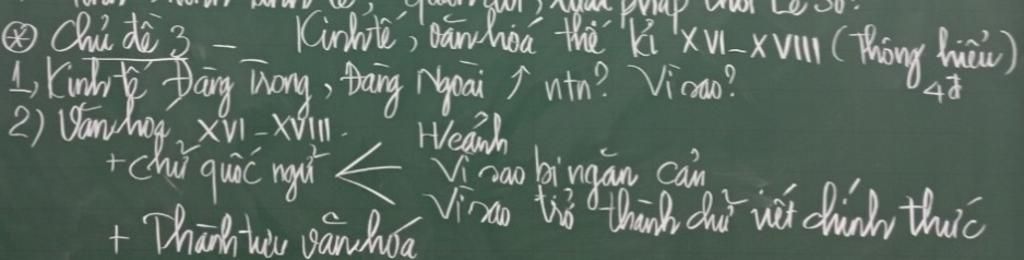 luật pháp thời Lê Sơ?
⊛ Chủ đề 3 - Kinh tế, văn hoá thế kỉ XVI-XVIII (Thông hiểu)
4đ
1, Kinh tế Đàng Trong, Đàng Ngoài ↑ ntn? Vì sao?
2) Văn hoá XVI-XVIII.
H/cảnh
+ chữ quốc ngữ < Vì sao bị ngăn cản
Vì sao trở thành chữ viết chính thức
+ Thành tựu văn hóa